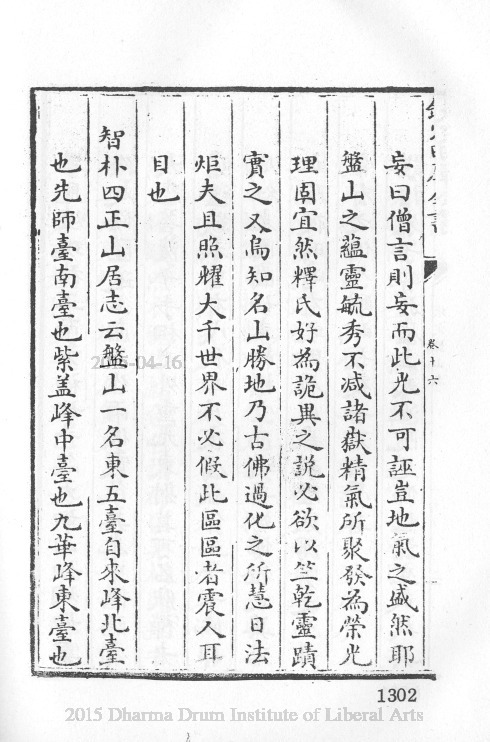 卷十六
妄曰僧言則妄而此光不可誣豈地氣之盛然耶
盤山之蘊靈毓秀不减諸嶽精氣所聚發為榮光
理固宜然釋氏好為詭異之説必欲以竺乾靈蹟
實之又烏知名山勝地乃古佛過化之所慧日法
炬夫且照耀大千世界不必假此區區者震人耳
目也
智朴四正山居志云盤山一名東五臺自来峰北臺
也先師臺南臺也紫盖峰中臺也九華峰東臺也
1302
2015 Dharma Drum Institute of Liberal Arts